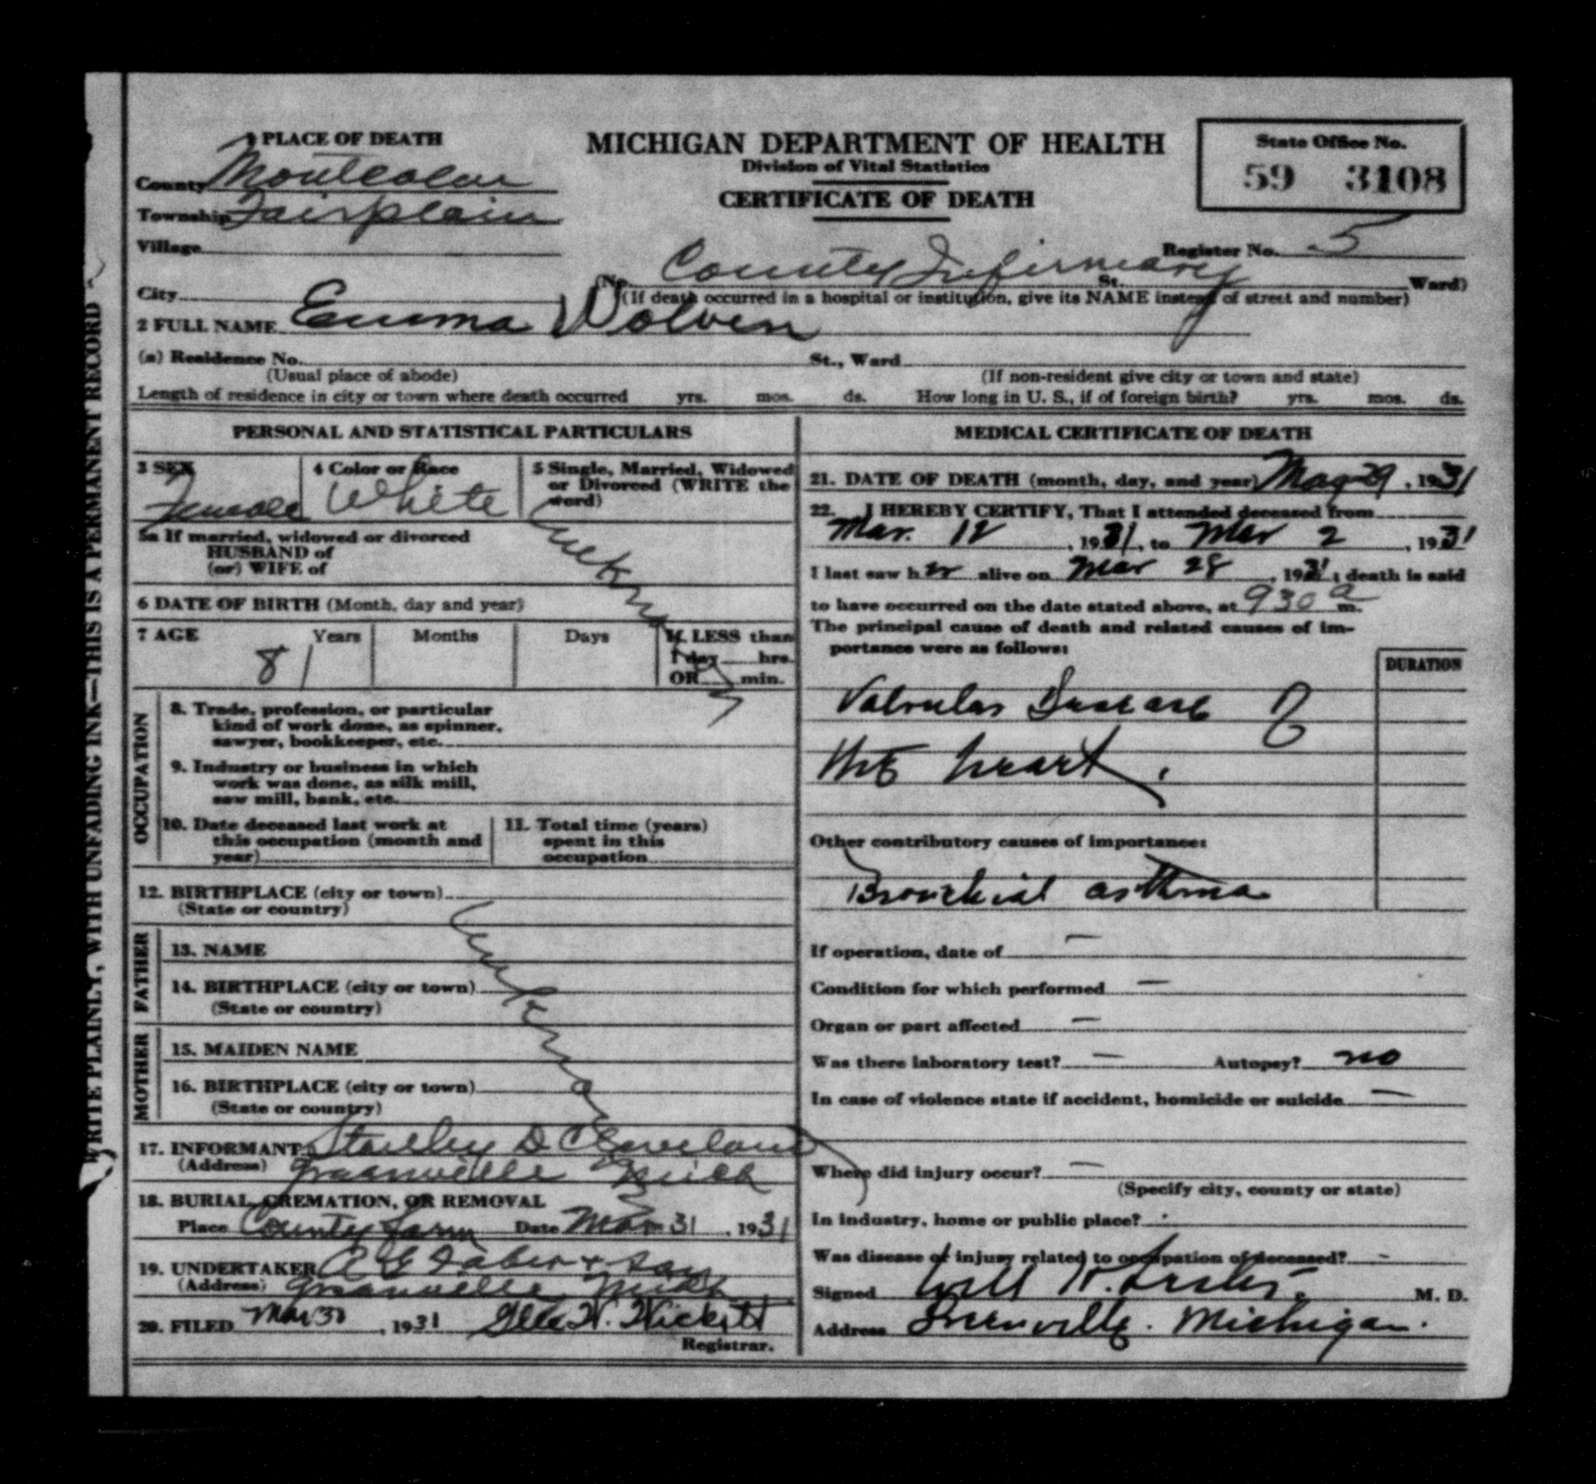 1 PLACE OF DEATH
MICHIGAN DEPARTMENT OF HEALTH
Division of Vital Statistics
CERTIFICATE OF DEATH
State Office No.
59 3108
County Montcalm
Township Fairplain
Village
Register No. 5
City
(No. County Infirmary St. Ward)
(If death occurred in a hospital or institution, give its NAME instead of street and number)
2 FULL NAME Emma Wolven
(a) Residence No. St., Ward
(Usual place of abode) (If non-resident give city or town and state)
Length of residence in city or town where death occurred yrs. mos. ds. How long in U. S., if of foreign birth? yrs. mos. ds.
PERSONAL AND STATISTICAL PARTICULARS
3 SEX
Female
4 Color or Race
White
5 Single, Married, Widowed
or Divorced (WRITE the
word)
Unknown
5a If married, widowed or divorced
HUSBAND of
(or) WIFE of
6 DATE OF BIRTH (Month, day and year)
7 AGE Years Months Days If LESS than
1 day hrs.
OR min.
81
OCCUPATION
8. Trade, profession, or particular
kind of work done, as spinner,
sawyer, bookkeeper, etc.
9. Industry or business in which
work was done, as silk mill,
saw mill, bank, etc.
10. Date deceased last work at
this occupation (month and
year)
11. Total time (years)
spent in this
occupation
12. BIRTHPLACE (city or town)
(State or country)
Unknown
FATHER
13. NAME
14. BIRTHPLACE (city or town)
(State or country)
MOTHER
15. MAIDEN NAME
16. BIRTHPLACE (city or town)
(State or country)
17. INFORMANT Stanley D Cleveland
(Address) Greenville Mich
18. BURIAL, CREMATION, OR REMOVAL
Place County farm Date Mar 31, 1931
19. UNDERTAKER
(Address) Greenville Mich
20. FILED Mar 30, 1931
Registrar.
MEDICAL CERTIFICATE OF DEATH
21. DATE OF DEATH (month, day, and year) Mar 29, 1931
22. I HEREBY CERTIFY, That I attended deceased from
Mar. 12, 1931, to Mar 2, 1931
I last saw her alive on Mar 28, 1931; death is said
to have occurred on the date stated above, at 930 a m.
The principal cause of death and related causes of im-
portance were as follows:
DURATION
Valvular Disease of
the heart.
Other contributory causes of importance:
Bronchial asthma
If operation, date of —
Condition for which performed —
Organ or part affected —
Was there laboratory test? — Autopsy? no
In case of violence state if accident, homicide or suicide —
Where did injury occur? —
(Specify city, county or state)
In industry, home or public place?
Was disease or injury related to occupation of deceased? -
Signed M. D.
Address Greenville. Michigan.
WRITE PLAINLY, WITH UNFADING INK—THIS IS A PERMANENT RECORD